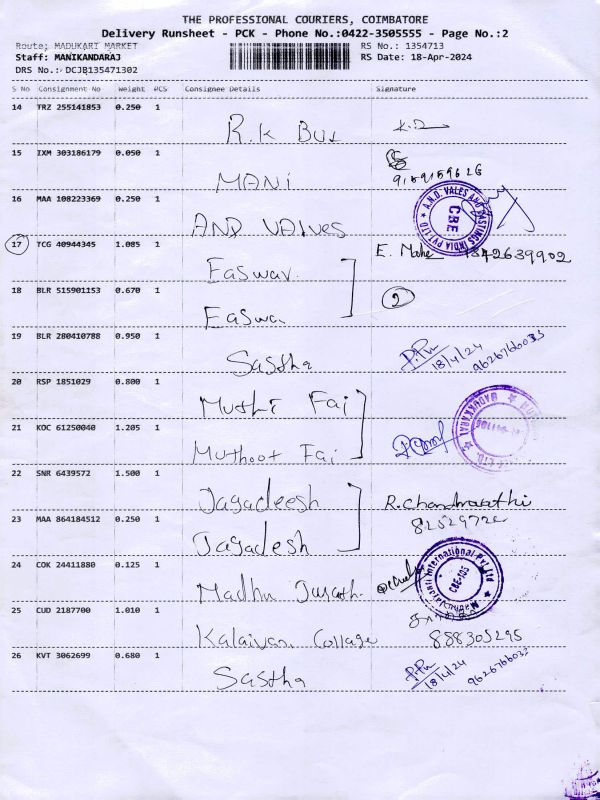 THE PROFESSIONAL COURIERS, COIMBATORE
Delivery Runsheet - PCK - Phone No.:0422-3505555 - Page No.:2
Route: MADUKARI MARKET
RS No.: 1354713
Staff: MANIKANDARAJ
RS Date: 18-Apr-2024
DRS No.: DCJB135471302
S No Consignment No Weight PCS Consignee Details Signature
14 TRZ 255141853 0.250 1
R.k Bus
15 IXM 303186179 0.050 1
MANi
9159159626
16 MAA 108223369 0.250 1
AND VALVES
A.N.D. VALES AND CASTINGS INDIA PVT.LTD
CBE
17 TCG 40944345 1.085 1 E.
Easwar.
18 BLR 515901153 0.670 1 2
Easwa
19 BLR 280410788 0.950 1
Sastha 18/4/24 9626766033
20 RSP 1851029 0.800 1
Muthi Fai
21 KOC 61250040 1.205 1
Muthoot Fai
22 SNR 6439572 1.500 1
Jagadeesh R.
23 MAA 864184512 0.250 1
Jagadesh
24 COK 24411880 0.125 1
Madhu
International Pvt Ltd
CBE-105
25 CUD 2187700 1.010 1
Kalaivan College 888305295
26 KVT 3062699 0.680 1
Sastha 18/4/24 9626766033